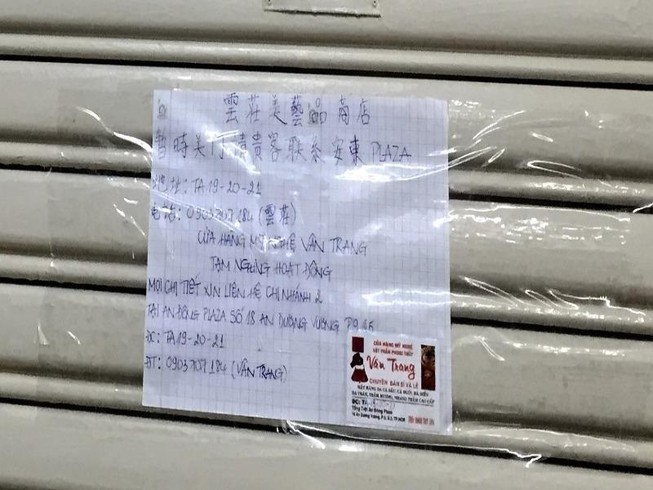 雲莊美藝品商店
暫時关门 請貴客联系安東 PLAZA
地址: TA 19-20-21
电话: 0903 707 184 (雲莊)
CỬA HÀNG MỸ NGHỆ VÂN TRANG
TẠM NGƯNG HOẠT ĐỘNG
MỌI CHI TIẾT XIN LIÊN HỆ CHI NHÁNH 2
TẠI AN ĐÔNG PLAZA SỐ 18 AN DƯƠNG VƯƠNG
ĐC: TA 19-20-21
ĐT: 0903 707 184 (VÂN TRANG)
CỬA HÀNG MỸ NGHỆ
VẬT PHẨM PHONG THỦY
Vân Trang
CHUYÊN BÁN SỈ VÀ LẺ